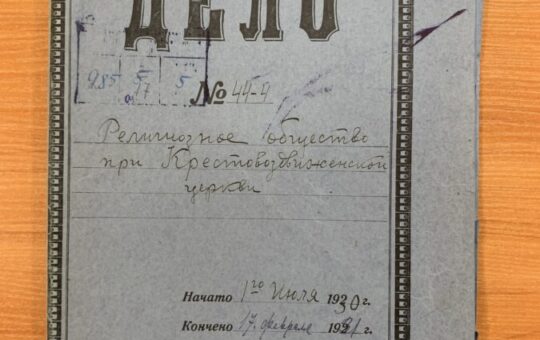 ДЕЛО
985 5/17 5
№ 44-9
Религиозное общество
при Крестовоздвиженской
церкви
Начато 1го Июля 1930 г.
Кончено 17. февраля 1931 г.